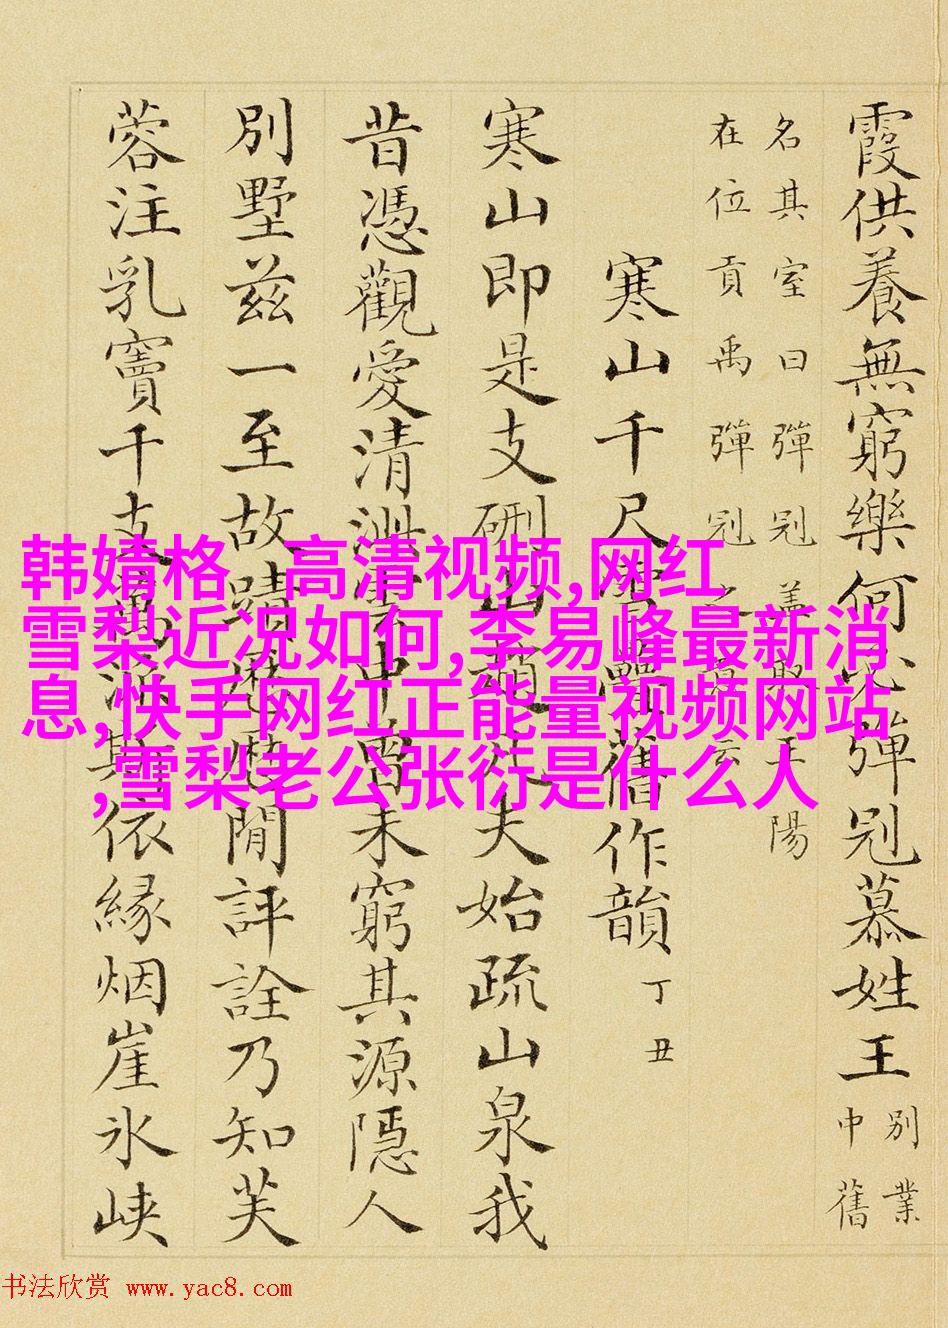 霞供養無窮樂何必彈冠慕姓王
別業
中舊
名其室曰彈冠蓋取王陽
在位貢禹彈冠之意云
寒山千尺雪疊舊作韻 丁丑
寒山即是支硎山趙夫始疏山泉我
昔憑觀愛清中未窮其源隱人
別墅茲一至故蹟歷歷閒評詮乃知芙
蓉注乳竇千支萬派依緣烟崖氷峽
韩婧格 高清视频,网红
雪梨近况如何,李易峰最新消
息,快手网红正能量视频网站
,雪梨老公张衍是什么人
书法欣赏 www.yac8.com